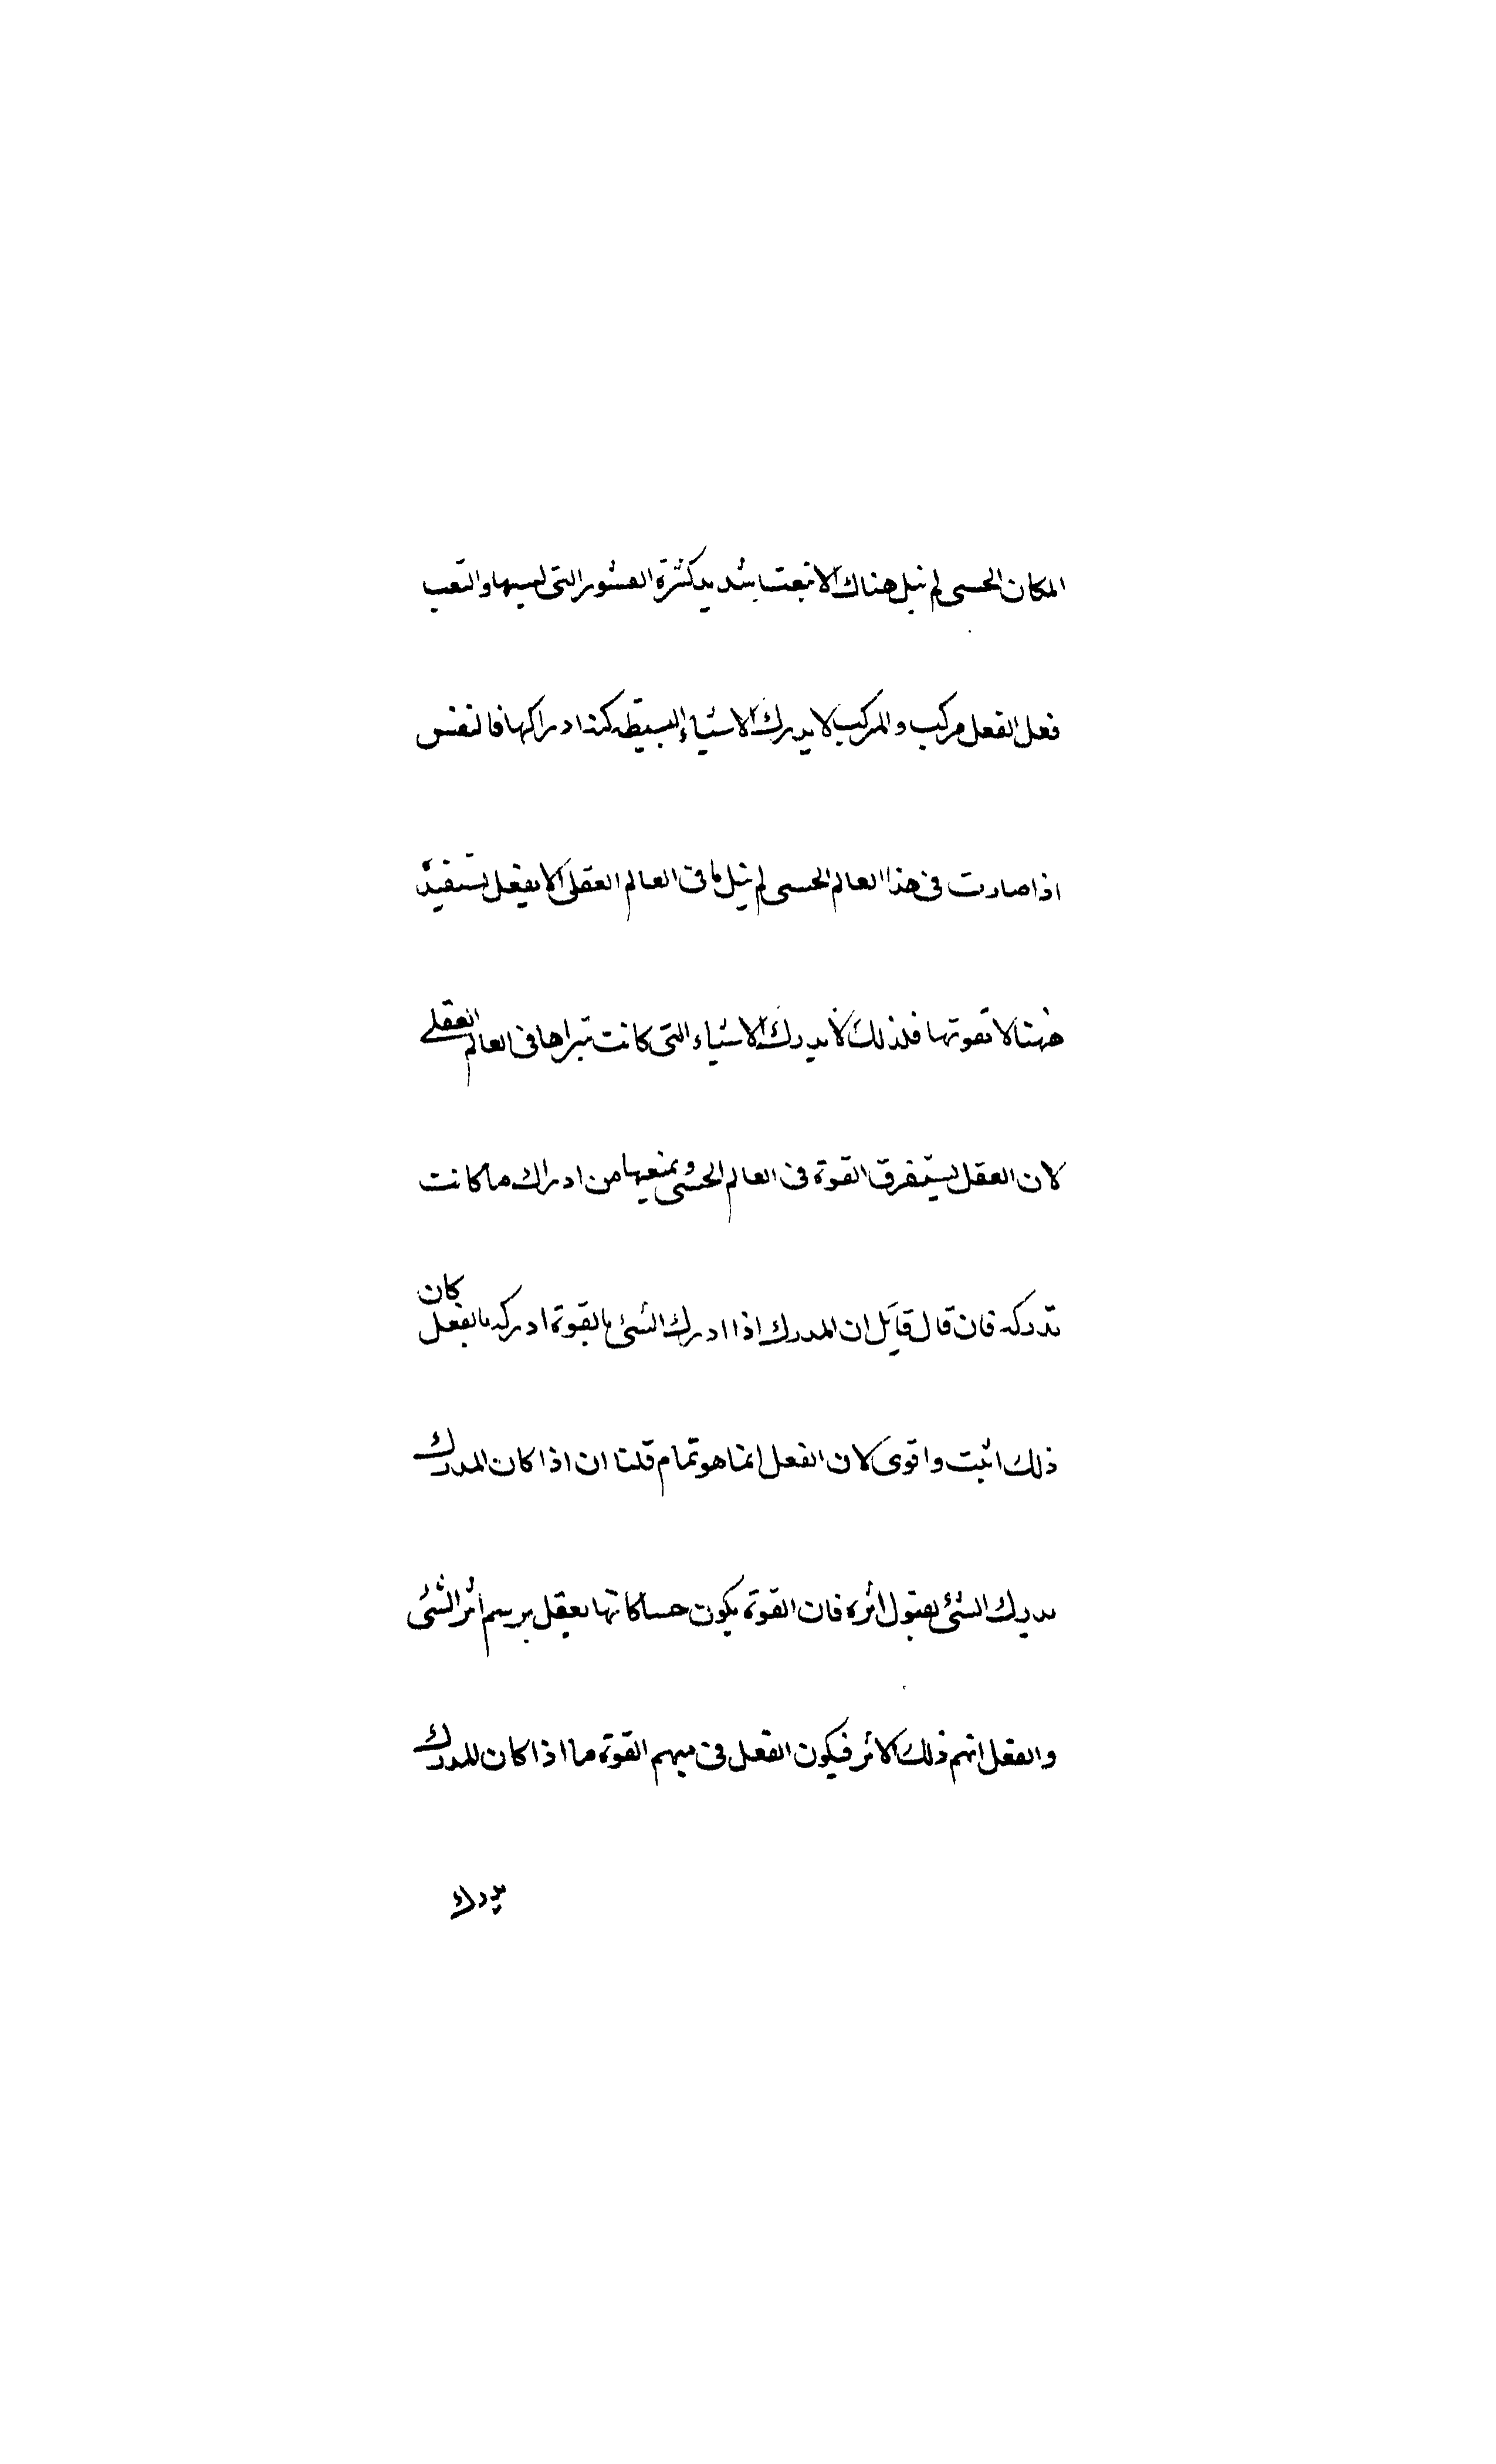 المكان الحسى لم نيل هناك الا بتعب شديد لكثرة القشور التى لبسها والتعب
فعل الفعل مركب والمركب لا يدرك الاشياء البسيطة كنه ادراكها فالنفس
اذا صارت فى هذا العالم الحسى لم نيل ما فى العالم العقلى الا بفعل تستفيده
ههنا لا بقوتها فلذلك لا يدرك الاشياء التى كانت تراها فى العالم العقلے
لان العقل يستغرق القوة فى العالم الحسى ويمنعها من ادراك ما كانت
تدركه فان قال قايل ان المدرك اذا ادرك الشئ بالقوة ادركه بالفعل كان
ذلك اثبت واقوى لان الفعل انما هو تمام قلنا ان اذا كان المدرك
يدرك الشئ بقبول اثره فان القوة يكون حسا كانها بعقل برسم اثر الشئ
والفعل اتهم ذلك الاثر فيكون الفعل فى ميهم القوة ما اذا كان للمدرك
يدرك